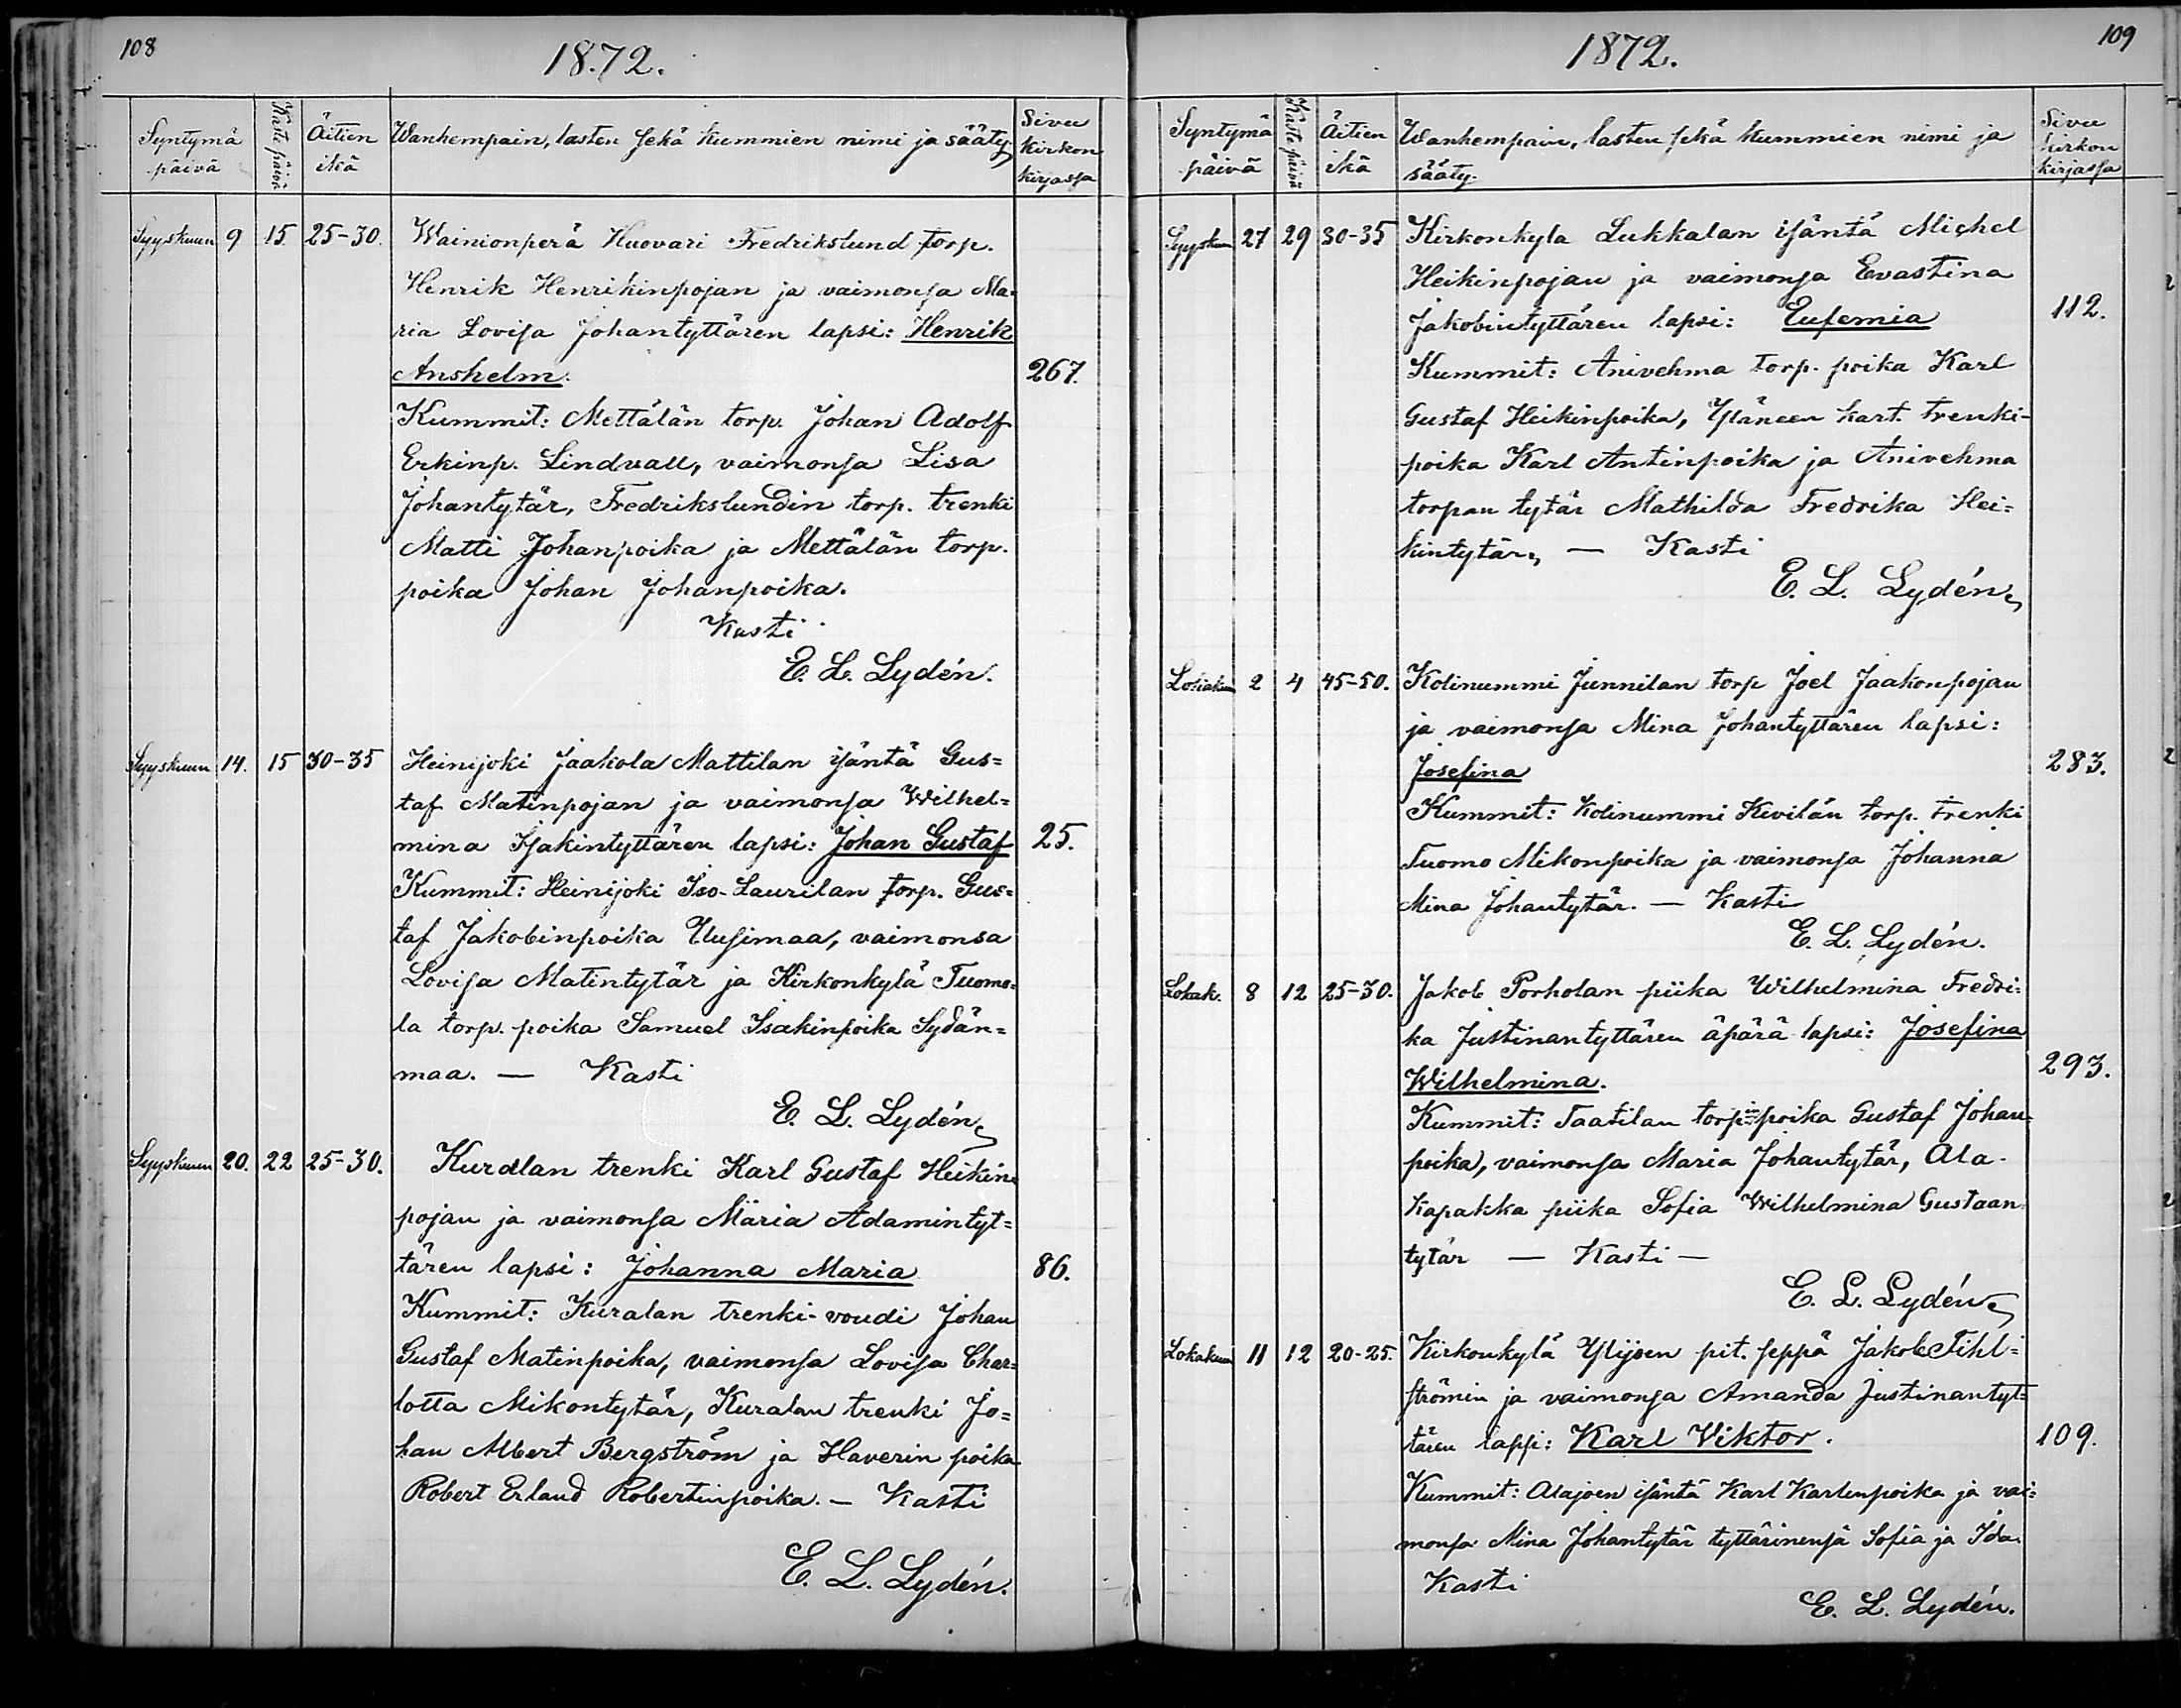 108
18.72.
Syntymä päivä
Kaste päivä
Äitien ikä
Wanhempain, lasten sekä kummien nimi ja sääty.
Sivu kirkon kirjassa
Syyskuun 9 15 25-30. Wainionperä Huovari Fredrikslund torp.
Henrik Henrikinpojan ja vaimonsa Ma-
ria Lovisa Johantyttären lapsi: Henrik
Anshelm. 267.
Kummit: Mettälän torp. Johan Adolf
Erkinp. Lindvall, vaimonsa Lisa
Johantytär, Fredrikslundin torp. trenki
Matti Johanpoika ja Mettälän torp.
poika Johan Johanpoika.
Kasti
E. L. Lydén.
Syyskuun 14. 15 30-35 Heinijoki Jaakola Mattilan isäntä Gus=
taf Matinpojan ja vaimonsa Wilhel=
mina Isakintyttären lapsi: Johan Gustaf 25.
Kummit: Heinijoki Iso-Laurilan torp. Gus=
taf Jakobinpoika Uusimaa, vaimonsa
Lovisa Matintytär ja Kirkonkylä Tuomo=
la torp. poika Samuel Isakinpoika Sydän=
maa. — Kasti
E. L. Lydén
Syyskuun 20. 22 25-30. Kuralan trenki Karl Gustaf Heikin-
pojan ja vaimonsa Maria Adamintyt=
tären lapsi: Johanna Maria 86.
Kummit: Kuralan trenki-voudi Johan
Gustaf Matinpoika, vaimonsa Lovisa Char=
lotta Mikontytär, Kuralan trenki Jo=
han Albert Bergström ja Haverin poika
Robert Erland Robertinpoika. — Kasti
E. L. Lydén.
109
1872.
Syntymä päivä
Kaste päivä
Äitien ikä
Wanhempain, lasten sekä kummien nimi ja
sääty.
Sivu kirkon kirjassa
Syyskuun 27 29 30-35 Kirkonkyla Lukkalan isäntä Michel
Heikinpojan ja vaimonsa Evastina
Jakobintyttären lapsi: Eufemia 112.
Kummit: Anivehma torp. poika Karl
Gustaf Heikinpoika, Yläneen kart. trenki-
poika Karl Antinpoika ja Anivehma
torpan tytär Mathilda Fredrika Hei=
kintytär, — Kasti
E. L. Lydén
Lokakuun 2 4 45-50. Kolinummi Junnilan torp Joel Jaakonpojan
ja vaimonsa Mina Johantyttären lapsi:
Josefina 283.
Kummit: Kolinummi Kivilän torp. trenki
Tuomo Mikonpoika ja vaimonsa Johanna
Mina Johantytär. — Kasti
E. L. Lydén.
Lokak. 8 12 25-30. Jakob Porholan piika Wilhelmina Fredri=
ka Justinantyttären äpärä lapsi: Josefina
Wilhelmina. 293.
Kummit: Taatilan torpin poika Gustaf Johan-
poika, vaimonsa Maria Johantytär, Ala-
Kapakka piika Sofia Wilhelmina Gustaan-
tytär — Kasti —
E. L. Lydén
Lokakuun 11 12 20-25. Kirkonkylä Ylijoen pit. seppä Jakob Fihl=
strömin ja vaimonsa Amanda Justinantyt=
tären lapsi: Karl Viktor. 109.
Kummit: Alajoen isäntä Karl Karlenpoika ja vai=
monsa Mina Johantytär tyttärinensä Sofia ja Ida.
Kasti
E. L. Lydén.